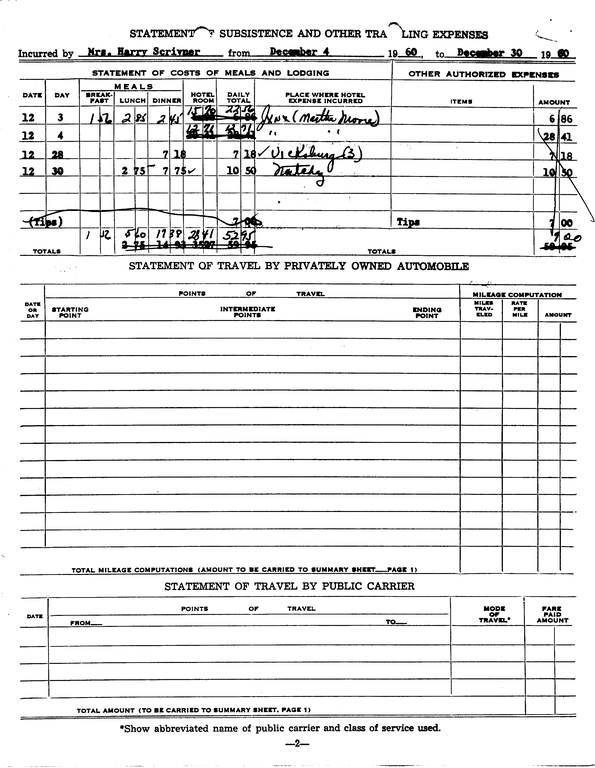 STATEMENT OF SUBSISTENCE AND OTHER TRA LING EXPENSES
Incurred by Mrs. Harry Scrivner from December 4 19 60, to December 30 19 60
STATEMENT OF COSTS OF MEALS AND LODGING OTHER AUTHORIZED EXPENSES
DATE DAY MEALS BREAK-FAST LUNCH DINNER HOTEL ROOM DAILY TOTAL PLACE WHERE HOTEL EXPENSE INCURRED ITEMS AMOUNT
12 3 1 56 2 85 2 45 15 70 22 56 Jxn (Martha Moore) 6 86
12 4 12 71 " " 28 41
12 28 7 18 7 18 ✓ Vicksburg (3) 7 18
12 30 2 75 7 75 ✓ 10 50 10 50
(Tips) 7 00 Tips 7 00
1 5 60 17 38 28 41 52 95 9 00
TOTALS 2 75 14 93 59 95 TOTALS 59 95
STATEMENT OF TRAVEL BY PRIVATELY OWNED AUTOMOBILE
DATE OR DAY POINTS OF TRAVEL MILEAGE COMPUTATION
STARTING POINT INTERMEDIATE POINTS ENDING POINT MILES TRAV-ELED RATE PER MILE AMOUNT
TOTAL MILEAGE COMPUTATIONS (AMOUNT TO BE CARRIED TO SUMMARY SHEET PAGE 1)
STATEMENT OF TRAVEL BY PUBLIC CARRIER
DATE POINTS OF TRAVEL MODE OF TRAVEL* FARE PAID AMOUNT
FROM TO
TOTAL AMOUNT (TO BE CARRIED TO SUMMARY SHEET, PAGE 1)
*Show abbreviated name of public carrier and class of service used.
—2—